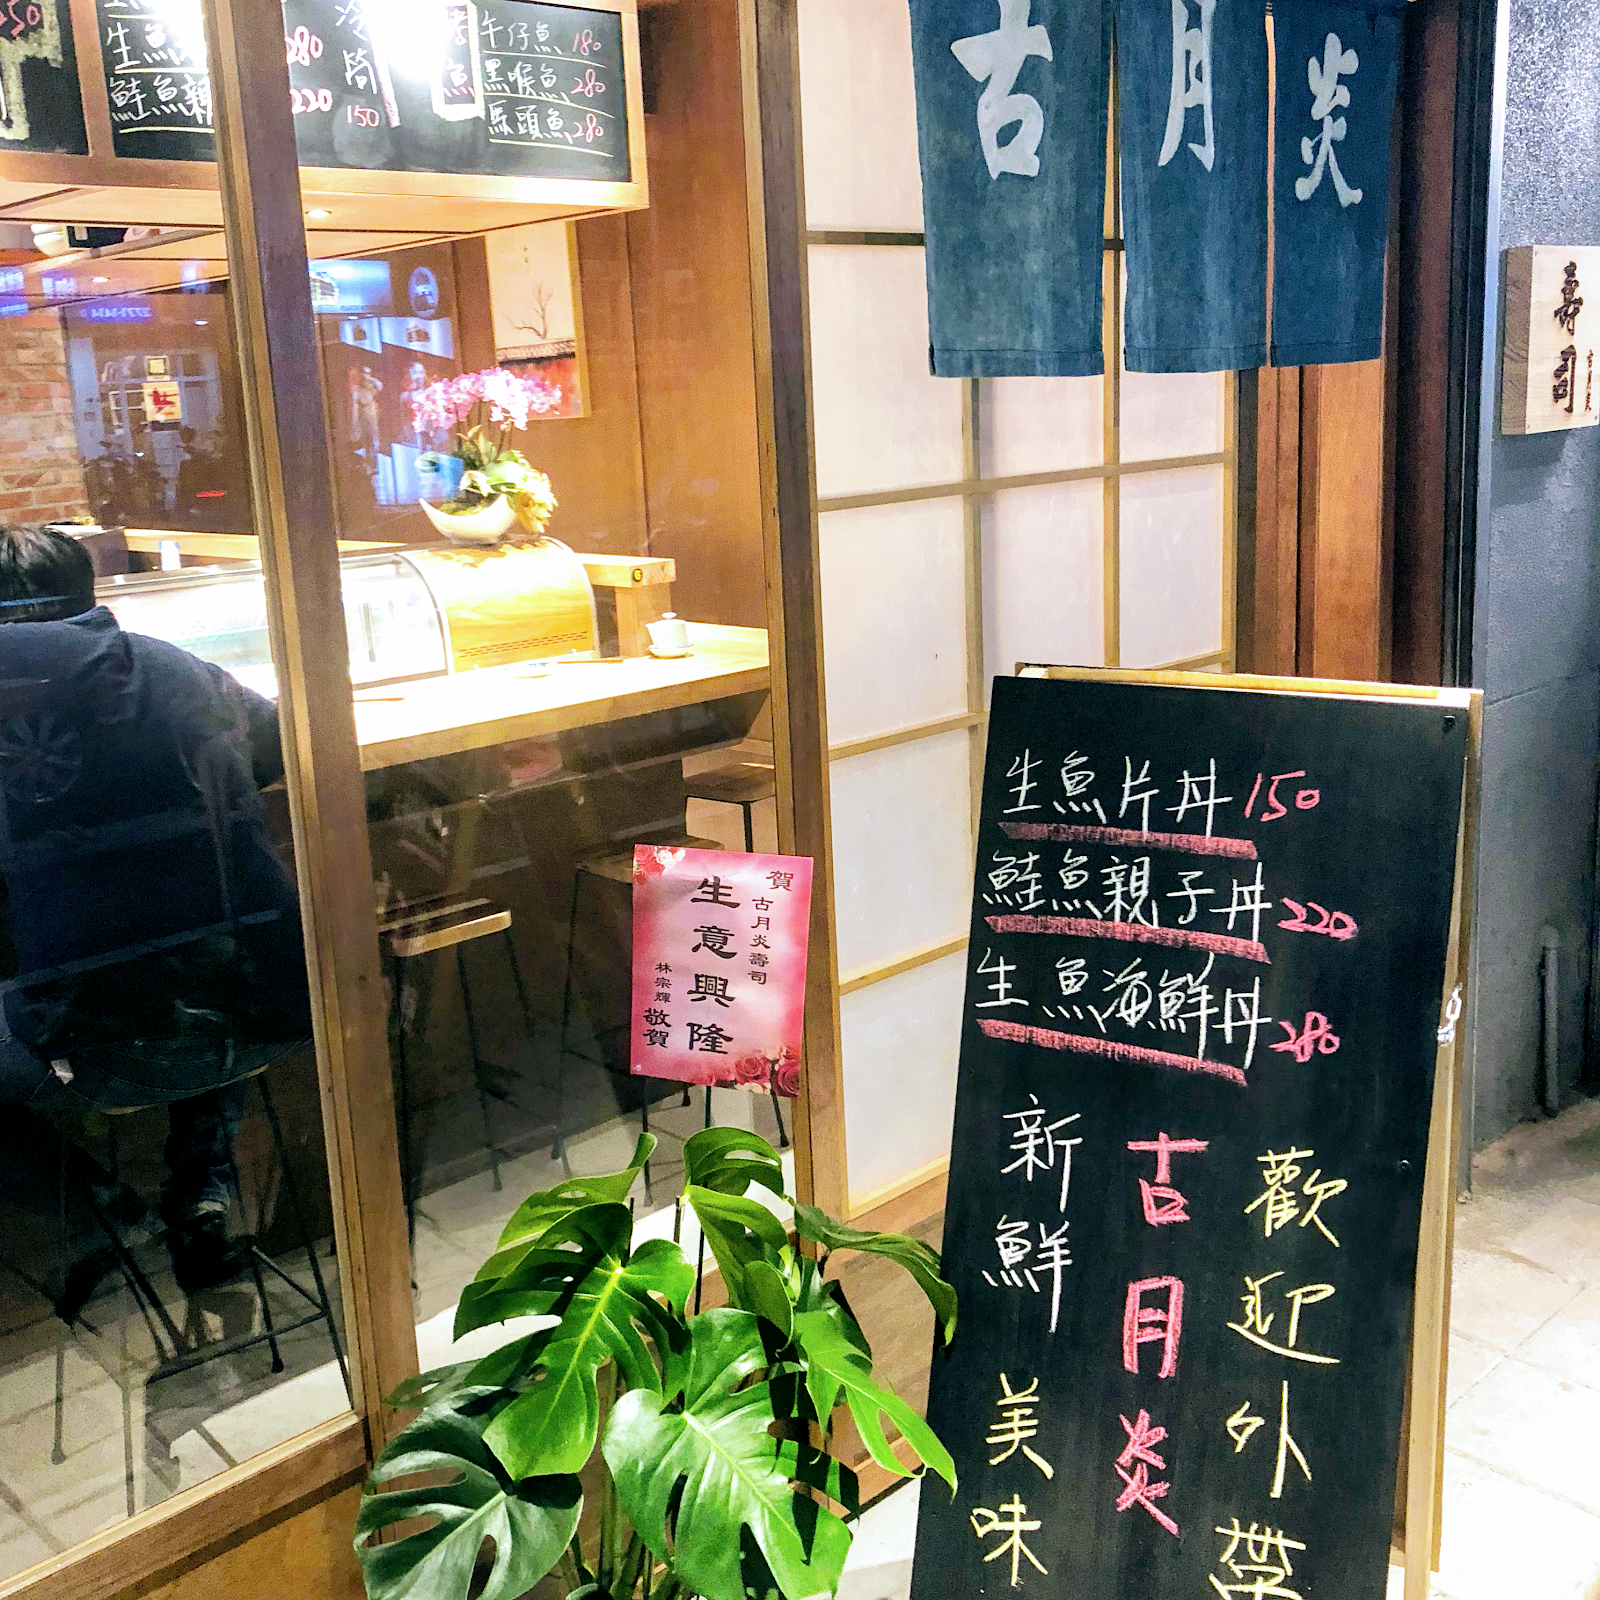 古月炎
壽司
生魚
280
鮭魚親
220
150
午仔魚 180
黑喉魚 280
馬頭魚 280
賀
古月炎壽司
生意興隆
林宗輝
敬賀
生魚片丼 150
鮭魚親子丼 220
生魚海鮮丼 280
歡迎外帶
古月炎
新鮮美味